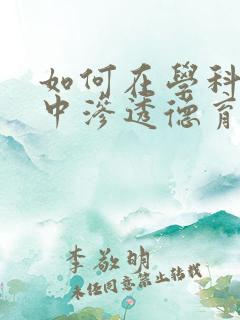 如何在學科
中滲透德育
李敬明
未經同意禁止轉載